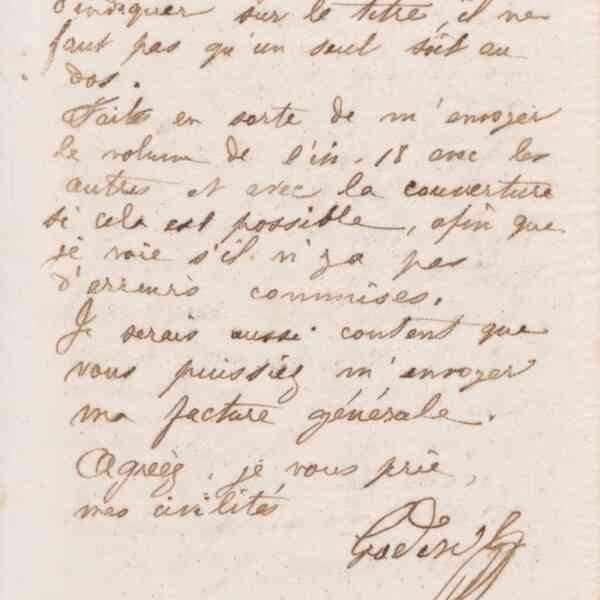 d'indiquer sur le titre, il ne
faut pas qu'un seul soit au
dos.
Faites en sorte de m'envoyer
le volume de l'in-18 avec les
autres et avec la couverture
si cela est possible, afin que
je voie s'il n'y a pas
d'erreurs commises.
Je serais aussi content que
vous puissiez m'envoyer
ma facture générale.
Agréez, je vous prie,
mes civilités